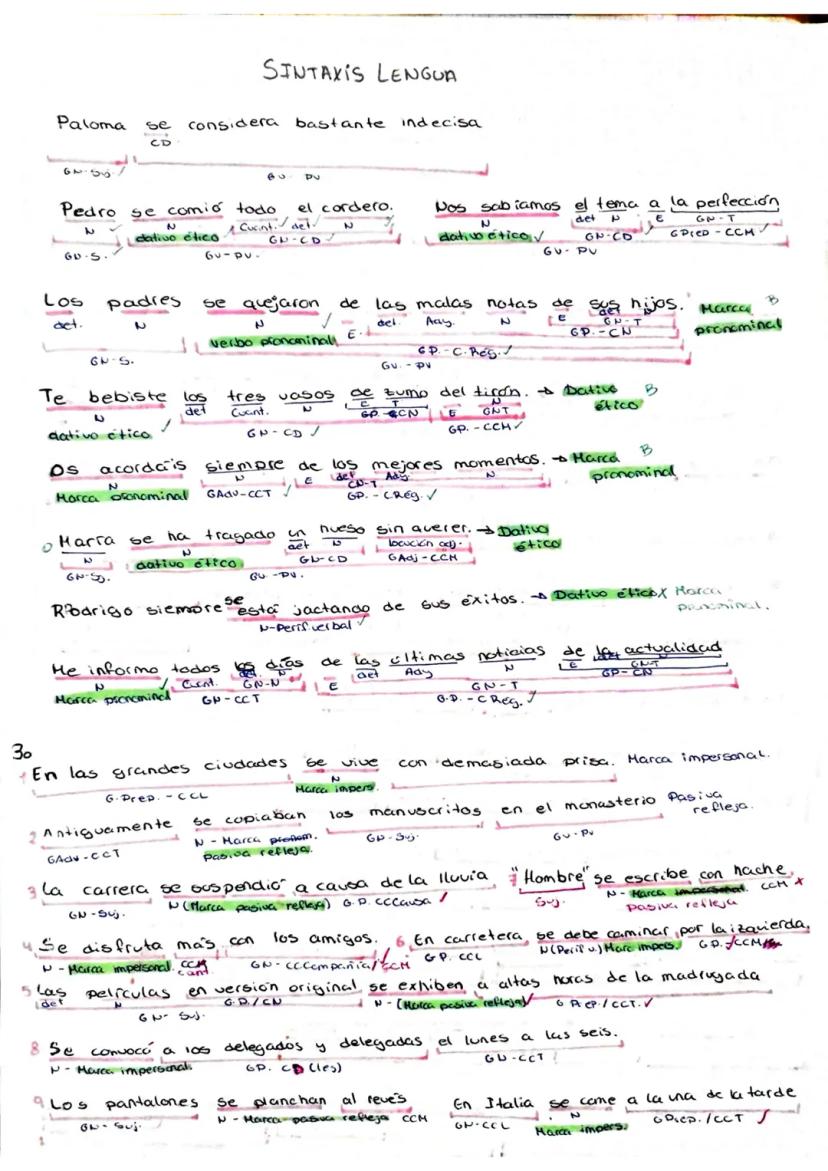 SINTAXIS LENGUA
Paloma se considera bastante indecisa
CD
GN-Suj. GV- PV
Pedro se comió todo el cordero. Nos sabíamos el tema a la perfección
N N Cuant. det. N N det N E GN-T
dativo ético GN-CD dativo ético GN-CD GPrep-CCM
GN-S. GV-PV. GV-PV
Los padres se quejaron de las malas notas de sus hijos. Marca B
det. N N E det. Adj. N E det N pronominal
verbo pronominal GN-T
GP.-CN
GN-S. GP.-C.Reg.
GV.-PV
Te bebiste los tres vasos de zumo del tirón. → Dativo B
N det Cuant. N E T E N ético
GP.-CN GNT
dativo ético GN-CD GP.-CCM
Os acordáis siempre de los mejores momentos. → Marca B
N N E det Adj. N pronominal
Marca pronominal GAdv-CCT GN-T
GP.-CReg.
Marta se ha tragado un hueso sin querer. → Dativo
N N det N locución adj. ético
dativo ético GN-CD GAdj-CCM
GN-Sj. GV.-PV.
Rodrigo siempre se está jactando de sus éxitos. → Dativo ético X Marca
N-Perif verbal pronominal.
Me informo todos los días de las últimas noticias de la actualidad
N Cuant. det. N E det Adj N E det N
Marca pronominal GN-N GN-T GNT
GN-CCT GP-CN
G.P.-CReg.
3o
1 En las grandes ciudades se vive con demasiada prisa. Marca impersonal.
G.Prep.-CCL N
Marca impers.
2 Antiguamente se copiaban los manuscritos en el monasterio Pasiva
refleja.
GAdv-CCT N-Marca pronom. GN-Suj. GV-PV
pasiva refleja.
3 La carrera se suspendió a causa de la lluvia 7 "Hombre" se escribe con hache
GN-Suj. N (Marca pasiva refleja) G.P. CCCausa Suj. N-Marca impersonal CCM X
pasiva refleja
4 Se disfruta más con los amigos. 6 En carretera se debe caminar por la izquierda.
N-Marca impersonal. CCM GN-CCCompañía/CCM GP. CCL N(Perif v.) Marc impers. GP./CCM
Cant
5 Las películas en versión original se exhiben a altas horas de la madrugada
det N G.P./CN N-(Marca pasiva refleja) GPrep./CCT.
GN-Suj.
8 Se convocó a los delegados y delegadas el lunes a las seis.
N-Marca impersonal. GP. CD (les) GN-CCT
9 Los pantalones se planchan al revés En Italia se come a la una de la tarde
GN-Suj. N-Marca pasiva refleja CCM GN-CCL N GPrep./CCT
Marca impers.